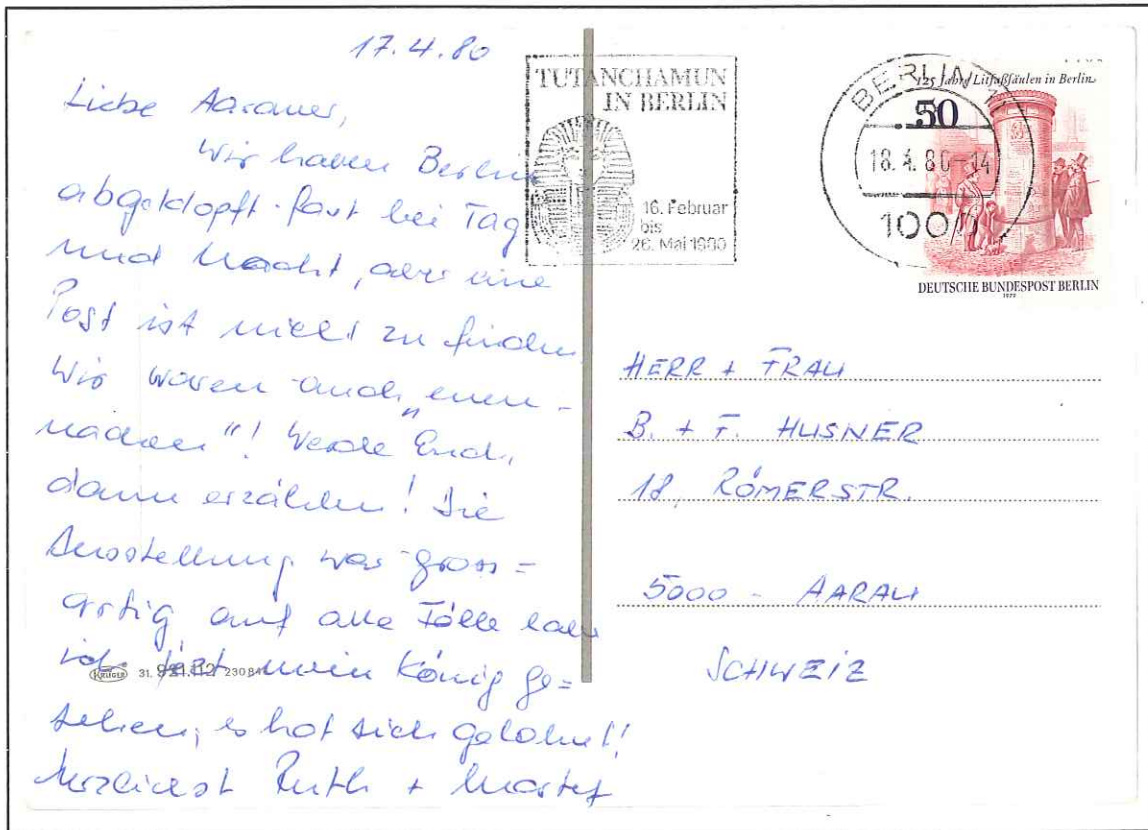 17.4.80
Liebe Aarauer,
Wir haben Berlin
abgeklopft fast bei Tag
und Nacht, aber eine
Post ist nicht zu finden.
Wir waren auch
"! Werde Euch,
dann erzählen! Die
Ausstellung war gross=
artig, auf alle Fälle habe
ich jetzt mein König ge=
sehen, es hat sich gelohnt!
Herzlichst Ruth +
KRÜGER 31. 921.112 2308
TUTANCHAMUN
IN BERLIN
16. Februar
bis
26. Mai 1980
BERLIN
18.4.80-14
1000
125 Jahre Litfaßsäulen in Berlin
50
DEUTSCHE BUNDESPOST BERLIN
1979
HERR + FRAU
B. + F. HUSNER
18, RÖMERSTR.
5000 - AARAU
SCHWEIZ